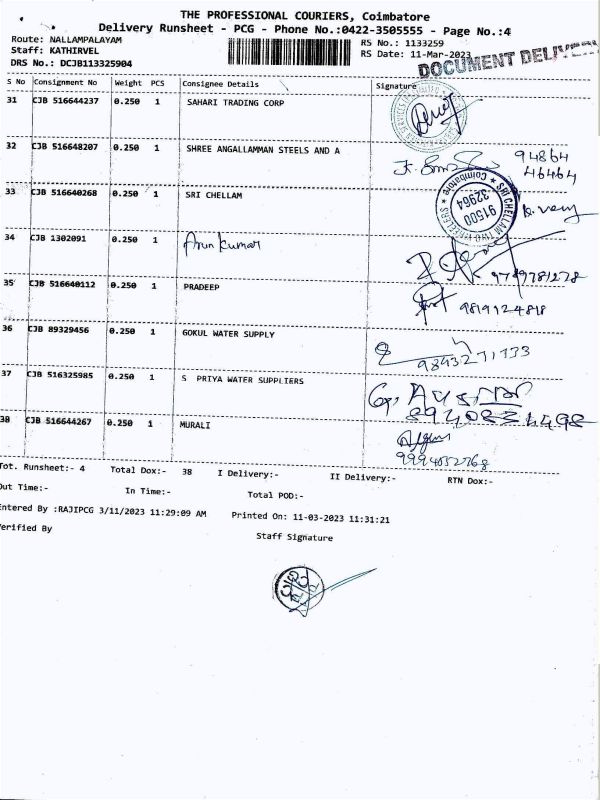 THE PROFESSIONAL COURIERS, Coimbatore
Delivery Runsheet - PCG - Phone No.:0422-3505555 - Page No.:4
Route: NALLAMPALAYAM
RS No.: 1133259
Staff: KATHIRVEL
RS Date: 11-Mar-2023
DRS No.: DCJB113325904
DOCUMENT DELIVERY
S No Consignment No Weight PCS Consignee Details Signature
31 CJB 516644237 0.250 1 SAHARI TRADING CORP
32 CJB 516648207 0.250 1 SHREE ANGALLAMMAN STEELS AND A 94864
46464
33 CJB 516640268 0.250 1 SRI CHELLAM
SRI CHELLAM TWO WHEELERS
Coimbatore
91500
32964
34 CJB 1302091 0.250 1 Arun kumar
9789781278
35 CJB 516640112 0.250 1 PRADEEP
9819124818
36 CJB 89329456 0.250 1 GOKUL WATER SUPPLY
9843271733
37 CJB 516325985 0.250 1 S PRIYA WATER SUPPLIERS
38 CJB 516644267 0.250 1 MURALI
Tot. Runsheet:- 4 Total Dox:- 38 I Delivery:- II Delivery:- RTN Dox:-
Out Time:- In Time:- Total POD:-
Entered By :RAJIPCG 3/11/2023 11:29:09 AM Printed On: 11-03-2023 11:31:21
Verified By
Staff Signature